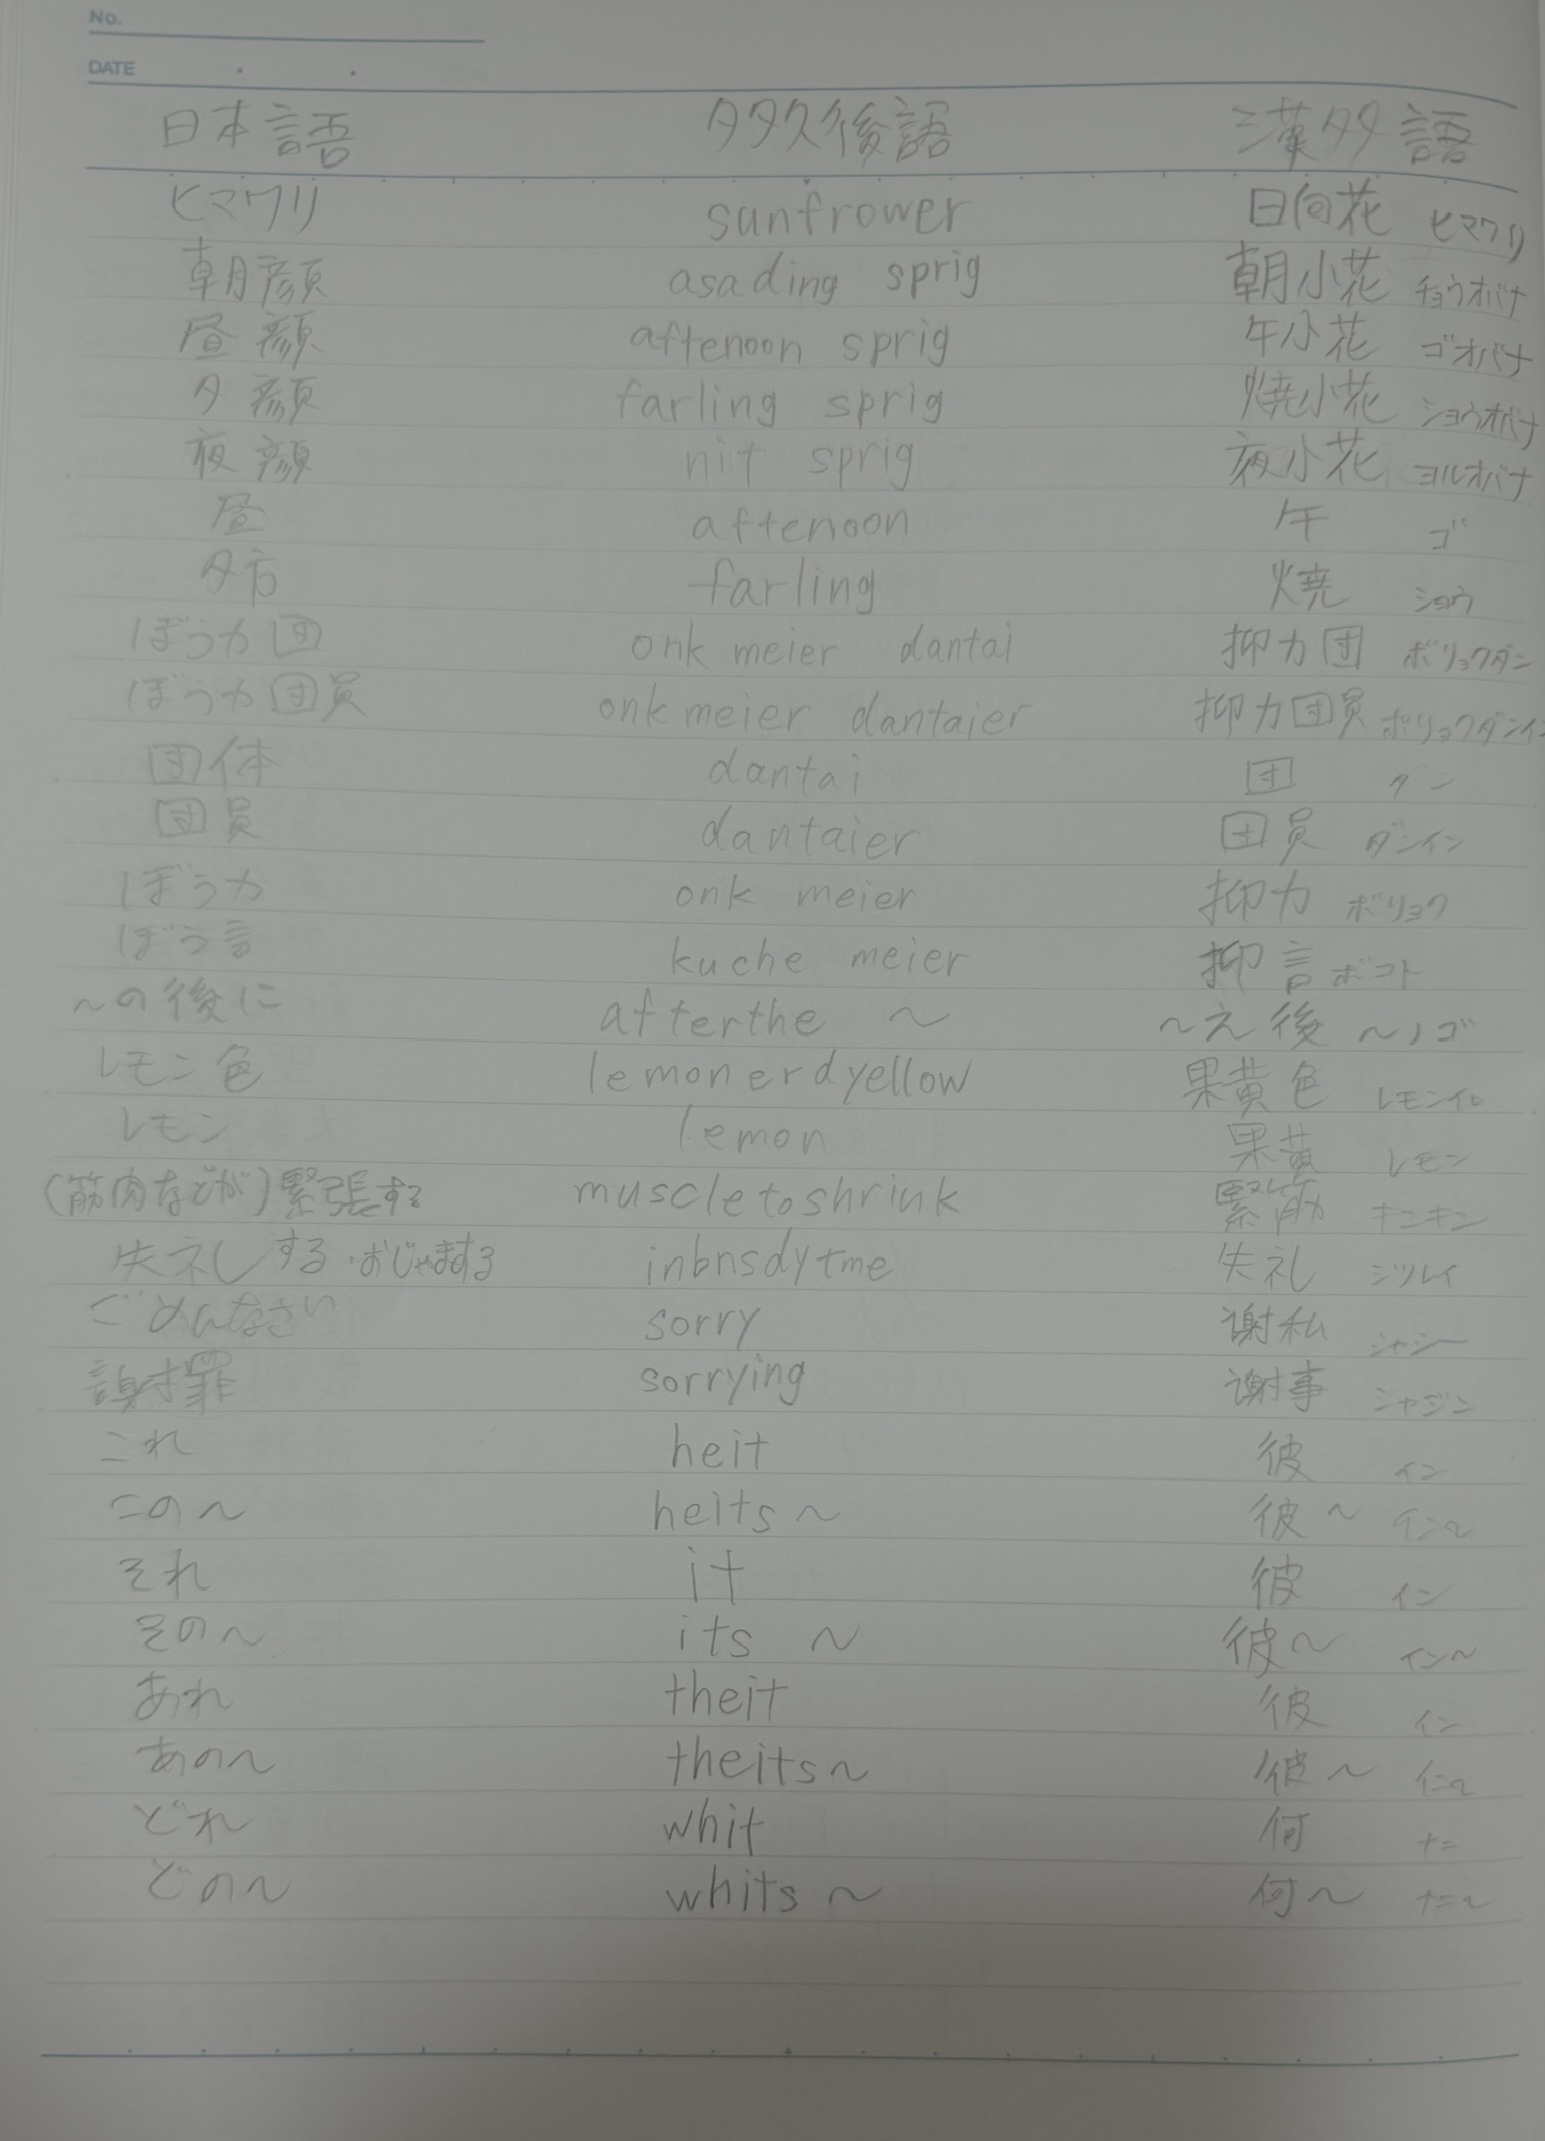 No.
DATE
日本語 タタ久後語 漢タタ語
ヒマワリ sunfrower 日向花 ヒマワリ
朝顔 asading sprig 朝小花 チョウオバナ
昼顔 aftenoon sprig 午小花 ゴオバナ
夕顔 farling sprig 焼小花 ショウオバナ
夜顔 nit sprig 夜小花 ヨルオバナ
昼 aftenoon 午 ゴ
夕方 farling 焼 ショウ
ぼう力団 onk meier dantai 抑力団 ボリョクダン
ぼう力団員 onk meier dantaier 抑力団員 ボリョクダンイン
団体 dantai 団 ダン
団員 dantaier 団員 ダンイン
ぼう力 onk meier 抑力 ボリョク
ぼう言 kuche meier 抑言 ボコト
～の後に afterthe ～ ～え後 ～ノゴ
レモン色 lemonerdyellow 果黄色 レモンイロ
レモン lemon 果黄 レモン
(筋肉などが)緊張する muscletoshrink 緊筋 キンキン
失礼しする・おじゃまする inbnsdytme 失礼 シツレイ
ごめんなさい sorry 谢私 シャシー
謝罪 sorrying 谢事 シャジン
これ heit 彼 イン
この～ heits ～ 彼～ イン～
それ it 彼 イン
その～ its ～ 彼～ イン～
あれ theit 彼 イン
あの～ theits～ 彼～ イン～
どれ whit 何 ナニ
どの～ whits ～ 何～ ナニ～